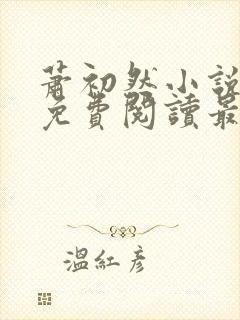 蕭初然小說
免費閱讀最
溫紅彥